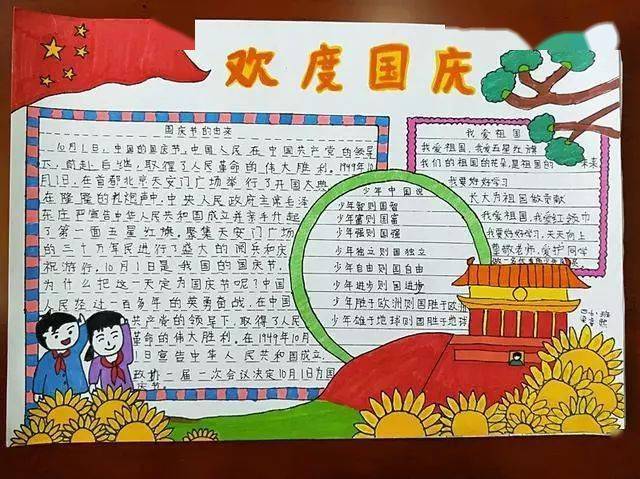 欢度国庆
国庆节的由来
10月1日,中国的国庆节,中国人民在中国共产党的领导
下,前赴后继,取得了人民革命的伟大胜利。1949年10
月1日,在首都北京天安门广场举行了开国大典
在隆隆的礼炮声中,中央人民政府主席毛泽
东庄严宣告中华人民共和国成立并亲手升起
了第一面五星红旗。聚集天安门广场
的三十万军民进行了盛大的阅兵和庆
祝游行。10月1日是我国的国庆节,
为什么把这一天定为国庆节呢?中国
人民经过一百多年的英勇奋战,在中国
共产党的领导下,取得了人民
革命的伟大胜利。在1949年10月
1日宣告中华人民共和国成立,
政协一届一次会议决定10月1日为国
庆节。
少年中国说
少年智则国智
少年富则国富
少年强则国强
少年独立则国独立
少年自由则国自由
少年进步则国进步
少年胜于欧洲则国胜于欧洲
少年雄于地球则国雄于地球
我爱祖国
我爱祖国,我爱五星红旗
我们的祖国的花朵,是祖国的未来
我要好好学习
长大为祖国做贡献
我爱祖国,我爱红领巾
我要好好学习,天天向上
尊敬老师,爱护同学